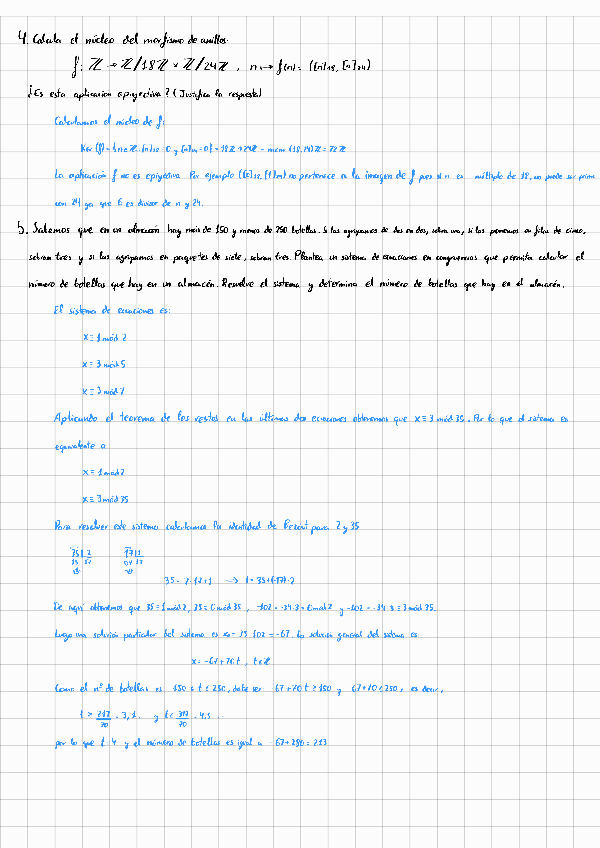 4. Calcula el núcleo del morfismo de anillos:
f: ℤ → ℤ/18ℤ × ℤ/24ℤ , n ↦ f(n) = ([n]18, [n]24)
¿Es esta aplicación epiyectiva? (Justifica la respuesta)
Calculamos el núcleo de f:
Ker (f) = {n∈ℤ : [n]18 = 0 y [n]24 = 0} = 18ℤ ∩ 24ℤ = mcm (18,24)ℤ = 72ℤ
La aplicación f no es epiyectiva. Por ejemplo ([0]18, [1]24) no pertenece a la imagen de f pues si n es múltiplo de 18, no puede ser primo
con 24 ya que 6 es divisor de n y 24.
5. Sabemos que en un almacén hay más de 150 y menos de 250 botellas. Si las agrupamos de dos en dos, sobra una, si las ponemos en filas de cinco,
sobran tres y si las agrupamos en paquetes de siete, sobran tres. Plantea un sistema de ecuaciones en congruencias que permita calcular el
número de botellas que hay en un almacén. Resuelve el sistema y determina el número de botellas que hay en el almacén.
El sistema de ecuaciones es:
x ≡ 1 mód 2
x ≡ 3 mód 5
x ≡ 3 mód 7
Aplicando el teorema de los restos en las últimas dos ecuaciones obtenemos que x ≡ 3 mód 35. Por lo que el sistema es
equivalente a
x ≡ 1 mód 2
x ≡ 3 mód 35
Para resolver este sistema calculamos la identidad de Bezout para 2 y 35
35 = 2·17+1 → 1 = 35+(-17)·2
De aquí obtenemos que 35 ≡ 1 mód 2, 35 ≡ 0 mód 35 , -102 = -34·3 ≡ 0 mód 2 y -102 = -34·3 ≡ 3 mód 35.
Luego una solución particular del sistema es x0 = 35-102 = -67. La solución general del sistema es
x = -67+70t , t∈ℤ
Como el nº de botellas es 150 ≤ t ≤ 250, debe ser -67+70t ≥ 150 y -67+70t ≤ 250, es decir,
t ≥ 217/70 = 3,1.. y t ≤ 317/70 = 4,5...
por lo que t=4 y el número de botellas es igual a -67+280 = 213